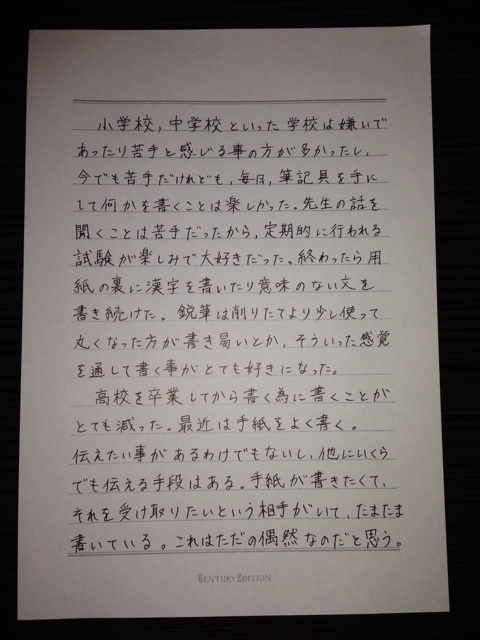 小学校，中学校といった学校は嫌いで
あったり苦手と感じる事の方が多かったし，
今でも苦手だけれども，毎日，筆記具を手に
して何かを書くことは楽しかった。先生の話を
聞くことは苦手だったから，定期的に行われる
試験が楽しみで大好きだった。終わったら用
紙の裏に漢字を書いたり意味のない文を
書き続けた。鋭筆は削りたてより少し使って
丸くなった方が書き易いとか，そういった感覚
を通して書く事がとても好きになった。
高校を卒業してから書く為に書くことが
とても減った。最近は手紙をよく書く。
伝えたい事があるわけでもないし，他にいくら
でも伝える手段はある。手紙が書きたくて，
それを受け取りたいという相手がいて，たまたま
書いている。これはただの偶然なのだと思う。
CENTURY EDITION